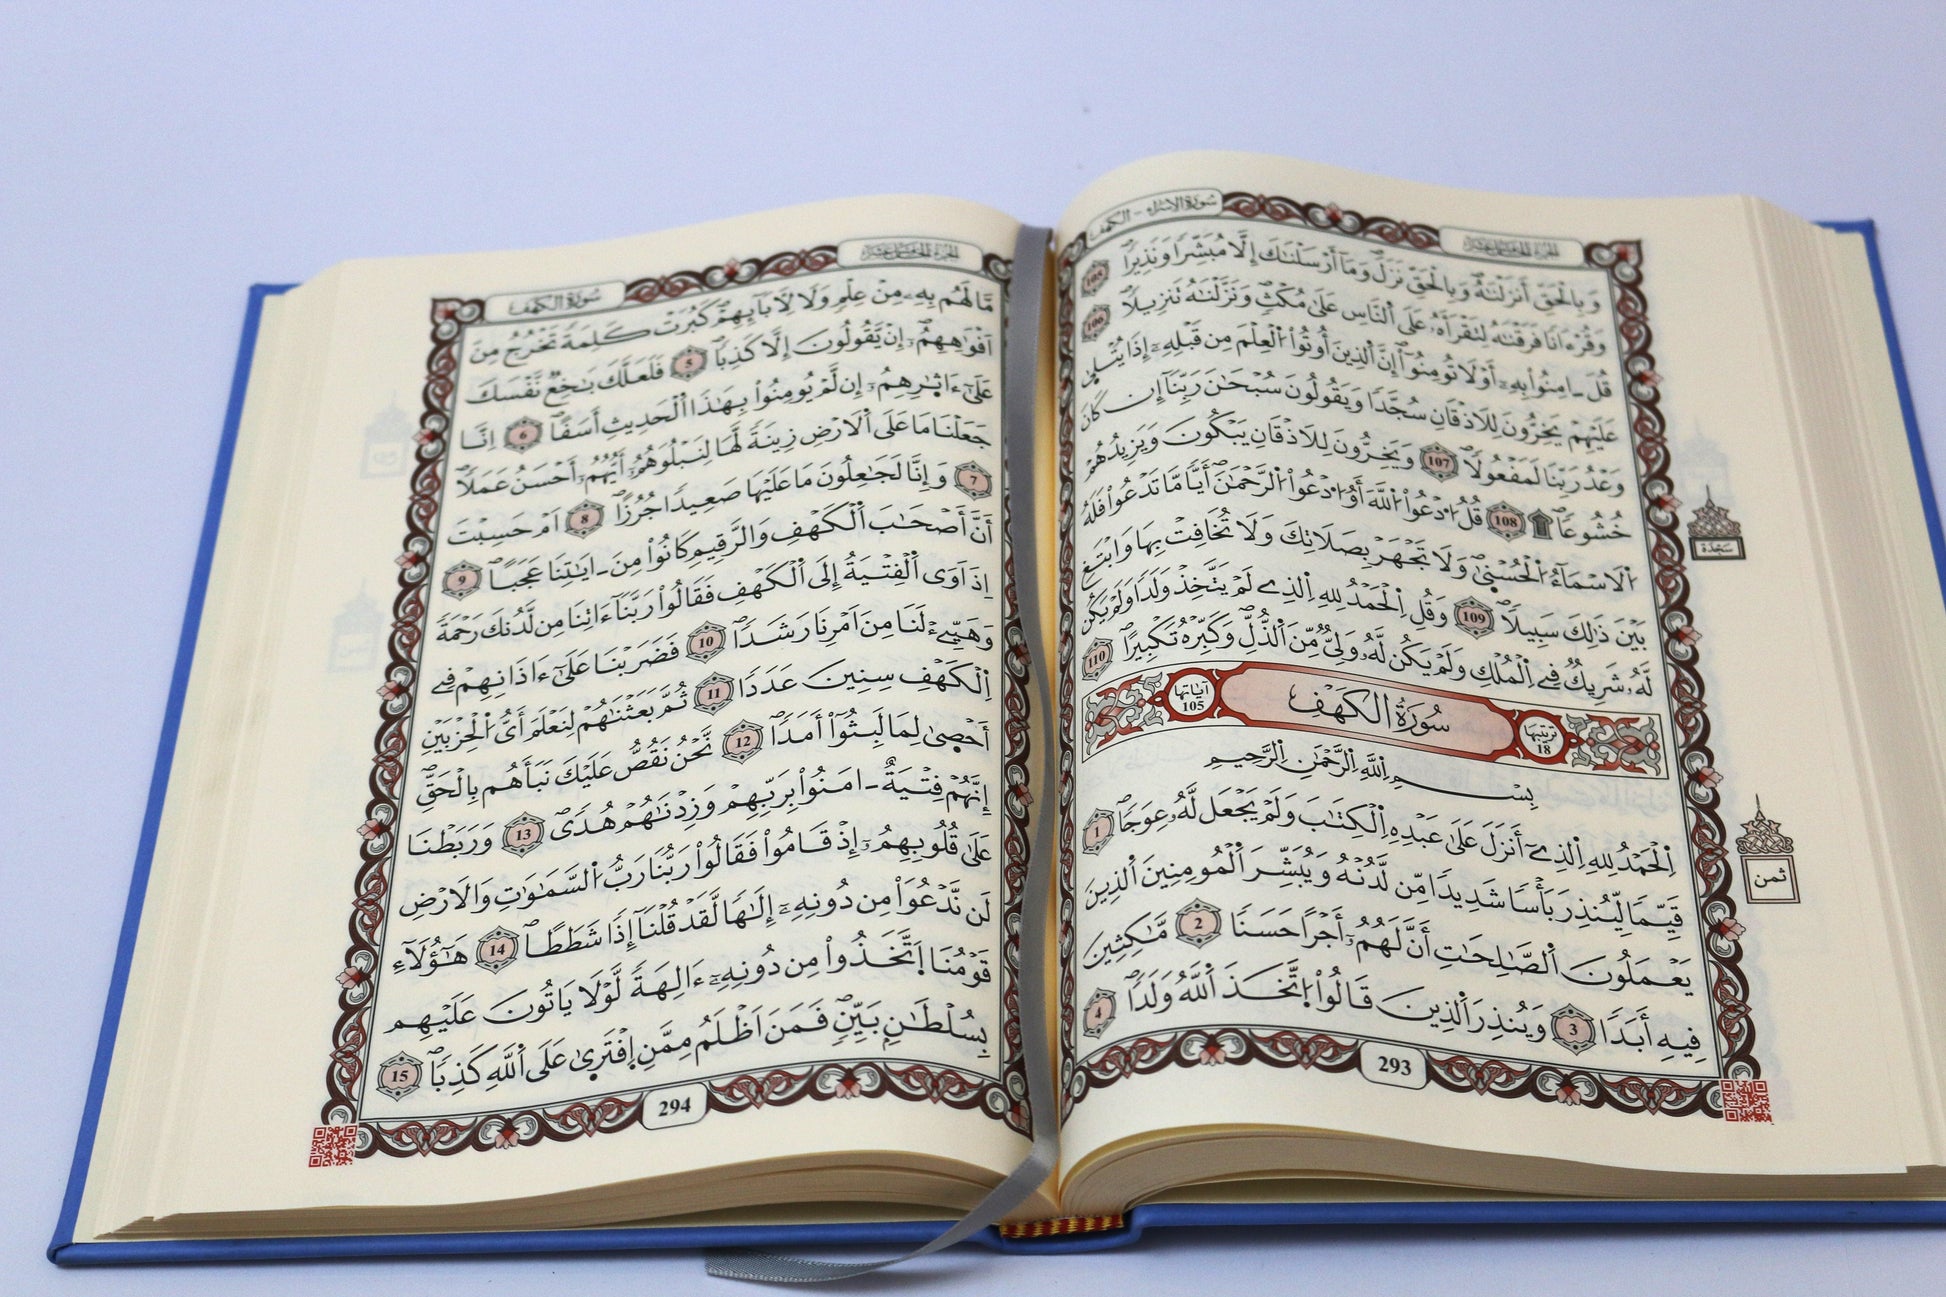 سُورَةُ الإسْرَاء - الكهف
الجزء الخامس عشر
وَبِالْحَقِّ أَنزَلْنَٰهُ وَبِالْحَقِّ نَزَلَۖ وَمَآ أَرْسَلْنَٰكَ إِلَّا مُبَشِّرًا وَنَذِيرًاۖ 105
وَقُرْءَانًا فَرَقْنَٰهُ لِتَقْرَأَهُۥ عَلَى اَ۬لنَّاسِ عَلَىٰ مُكْثٍۖ وَنَزَّلْنَٰهُ تَنزِيلًاۖ 106
قُلَ ـ اٰمِنُواْ بِهِۦٓ أَوْ لَا تُومِنُوٓاْۖ إِنَّ اَ۬لذِينَ أُوتُواْ اُ۬لْعِلْمَ مِن قَبْلِهِۦٓ إِذَا يُتْلَىٰ
عَلَيْهِمْ يَخِرُّونَ لِلَاذْقَانِ سُجَّدًا وَيَقُولُونَ سُبْحَٰنَ رَبِّنَآ إِن كَانَ
وَعْدُ رَبِّنَا لَمَفْعُولًاۖ 107 وَيَخِرُّونَ لِلَاذْقَانِ يَبْكُونَ وَيَزِيدُهُمْ
خُشُوعًاۖ ۩ 108 قُلُ اُ۟دْعُواْ اُ۬للَّهَ أَوُ اُ۟دْعُواْ اُ۬لرَّحْمَٰنَۖ أَيًّا مَّا تَدْعُواْ فَلَهُ
اُ۬لَاسْمَآءُ اُ۬لْحُسْنَىٰۖ وَلَا تَجْهَرْ بِصَلَاتِكَ وَلَا تُخَافِتْ بِهَا وَابْتَغِ
بَيْنَ ذَٰلِكَ سَبِيلًاۖ 109 وَقُلِ اِ۬لْحَمْدُ لِلهِ اِ۬لذِے لَمْ يَتَّخِذْ وَلَدًا وَلَمْ يَكُن
لَّهُۥ شَرِيكٌ فِے اِ۬لْمُلْكِ وَلَمْ يَكُن لَّهُۥ وَلِيٌّ مِّنَ اَ۬لذُّلِّۖ وَكَبِّرْهُ تَكْبِيرًاۖ 110
ترتيبها 18 سُورَةُ الكَهْفِ آياتها 105
بِسْمِ اِ۬للَّهِ اِ۬لرَّحْمَٰنِ اِ۬لرَّحِيمِ
اِ۬لْحَمْدُ لِلهِ اِ۬لذِےٓ أَنزَلَ عَلَىٰ عَبْدِهِ اِ۬لْكِتَٰبَ وَلَمْ يَجْعَل لَّهُۥ عِوَجًاۖ 1
قَيِّمًا لِّيُنذِرَ بَأْسًا شَدِيدًا مِّن لَّدُنْهُ وَيُبَشِّرَ اَ۬لْمُومِنِينَ اَ۬لذِينَ
يَعْمَلُونَ اَ۬لصَّٰلِحَٰتِ أَنَّ لَهُمُۥٓ أَجْرًا حَسَنًا 2 مَّٰكِثِينَ
فِيهِ أَبَدًا 3 وَيُنذِرَ اَ۬لذِينَ قَالُواْ اُ۪تَّخَذَ اَ۬للَّهُ وَلَدًاۖ 4
293
سَجْدَة
ثمن
سُورَةُ الكَهْفِ
الجزء الخامس عشر
مَّا لَهُم بِهِۦ مِنْ عِلْمٍ وَلَا لِأَبَآئِهِمْۖ كَبُرَتْ كَلِمَةً تَخْرُجُ مِنَ
اَفْوَٰهِهِمُۥٓۖ إِنْ يَّقُولُونَ إِلَّا كَذِبًاۖ 5 فَلَعَلَّكَ بَٰخِعٌ نَّفْسَكَ
عَلَىٰٓ ءَاثٰ۪رِهِمُۥٓ إِن لَّمْ يُومِنُواْ بِهَٰذَا اَ۬لْحَدِيثِ أَسَفًاۖ 6 اِنَّا
جَعَلْنَا مَا عَلَى اَ۬لَارْضِ زِينَةً لَّهَا لِنَبْلُوَهُمُۥٓ أَيُّهُمُۥٓ أَحْسَنُ عَمَلًاۖ
7 وَإِنَّا لَجَٰعِلُونَ مَا عَلَيْهَا صَعِيدًا جُرُزًاۖ 8 اَمْ حَسِبْتَ
أَنَّ أَصْحَٰبَ اَ۬لْكَهْفِ وَالرَّقِيمِ كَانُواْ مِنَ ـ اٰيَٰتِنَا عَجَبًاۖ 9
إِذَ اَوَى اَ۬لْفِتْيَةُ إِلَى اَ۬لْكَهْفِ فَقَالُواْ رَبَّنَآ ءَاتِنَا مِن لَّدُنكَ رَحْمَةً
وَهَيِّۓْ لَنَا مِنَ اَمْرِنَا رَشَدًاۖ 10 فَضَرَبْنَا عَلَىٰٓ ءَاذَانِهِمْ فِے
اِ۬لْكَهْفِ سِنِينَ عَدَدًا 11 ثُمَّ بَعَثْنَٰهُمْ لِنَعْلَمَ أَيُّ اُ۬لْحِزْبَيْنِ
أَحْصَىٰ لِمَا لَبِثُوٓاْ أَمَدًاۖ 12 نَّحْنُ نَقُصُّ عَلَيْكَ نَبَأَهُم بِالْحَقِّۖ
إِنَّهُمْ فِتْيَةٌ ـ اٰمَنُواْ بِرَبِّهِمْ وَزِدْنَٰهُمْ هُدًىۖ 13 وَرَبَطْنَا
عَلَىٰ قُلُوبِهِمُۥٓ إِذْ قَامُواْ فَقَالُواْ رَبُّنَا رَبُّ اُ۬لسَّمَٰوَٰتِ وَالَارْضِ
لَن نَّدْعُوَاْ مِن دُونِهِۦٓ إِلَٰهًا لَّقَدْ قُلْنَآ إِذًا شَطَطًاۖ 14 هَٰٓؤُلَآءِ
قَوْمُنَا اَ۪تَّخَذُواْ مِن دُونِهِۦٓ ءَالِهَةً لَّوْلَا يَاتُونَ عَلَيْهِم
بِسُلْطَٰنٍۢ بَيِّنٍۖ فَمَنَ اَظْلَمُ مِمَّنِ اِ۪فْتَر۪ىٰ عَلَى اَ۬للَّهِ كَذِبًاۖ 15
294